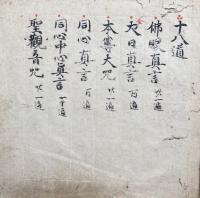 十八道
佛眼真言 廿一遍
大日真言 百遍
本尊大咒 廿一遍
同心真言 百遍
同心中心真言 一千遍
聖觀音咒 廿一遍